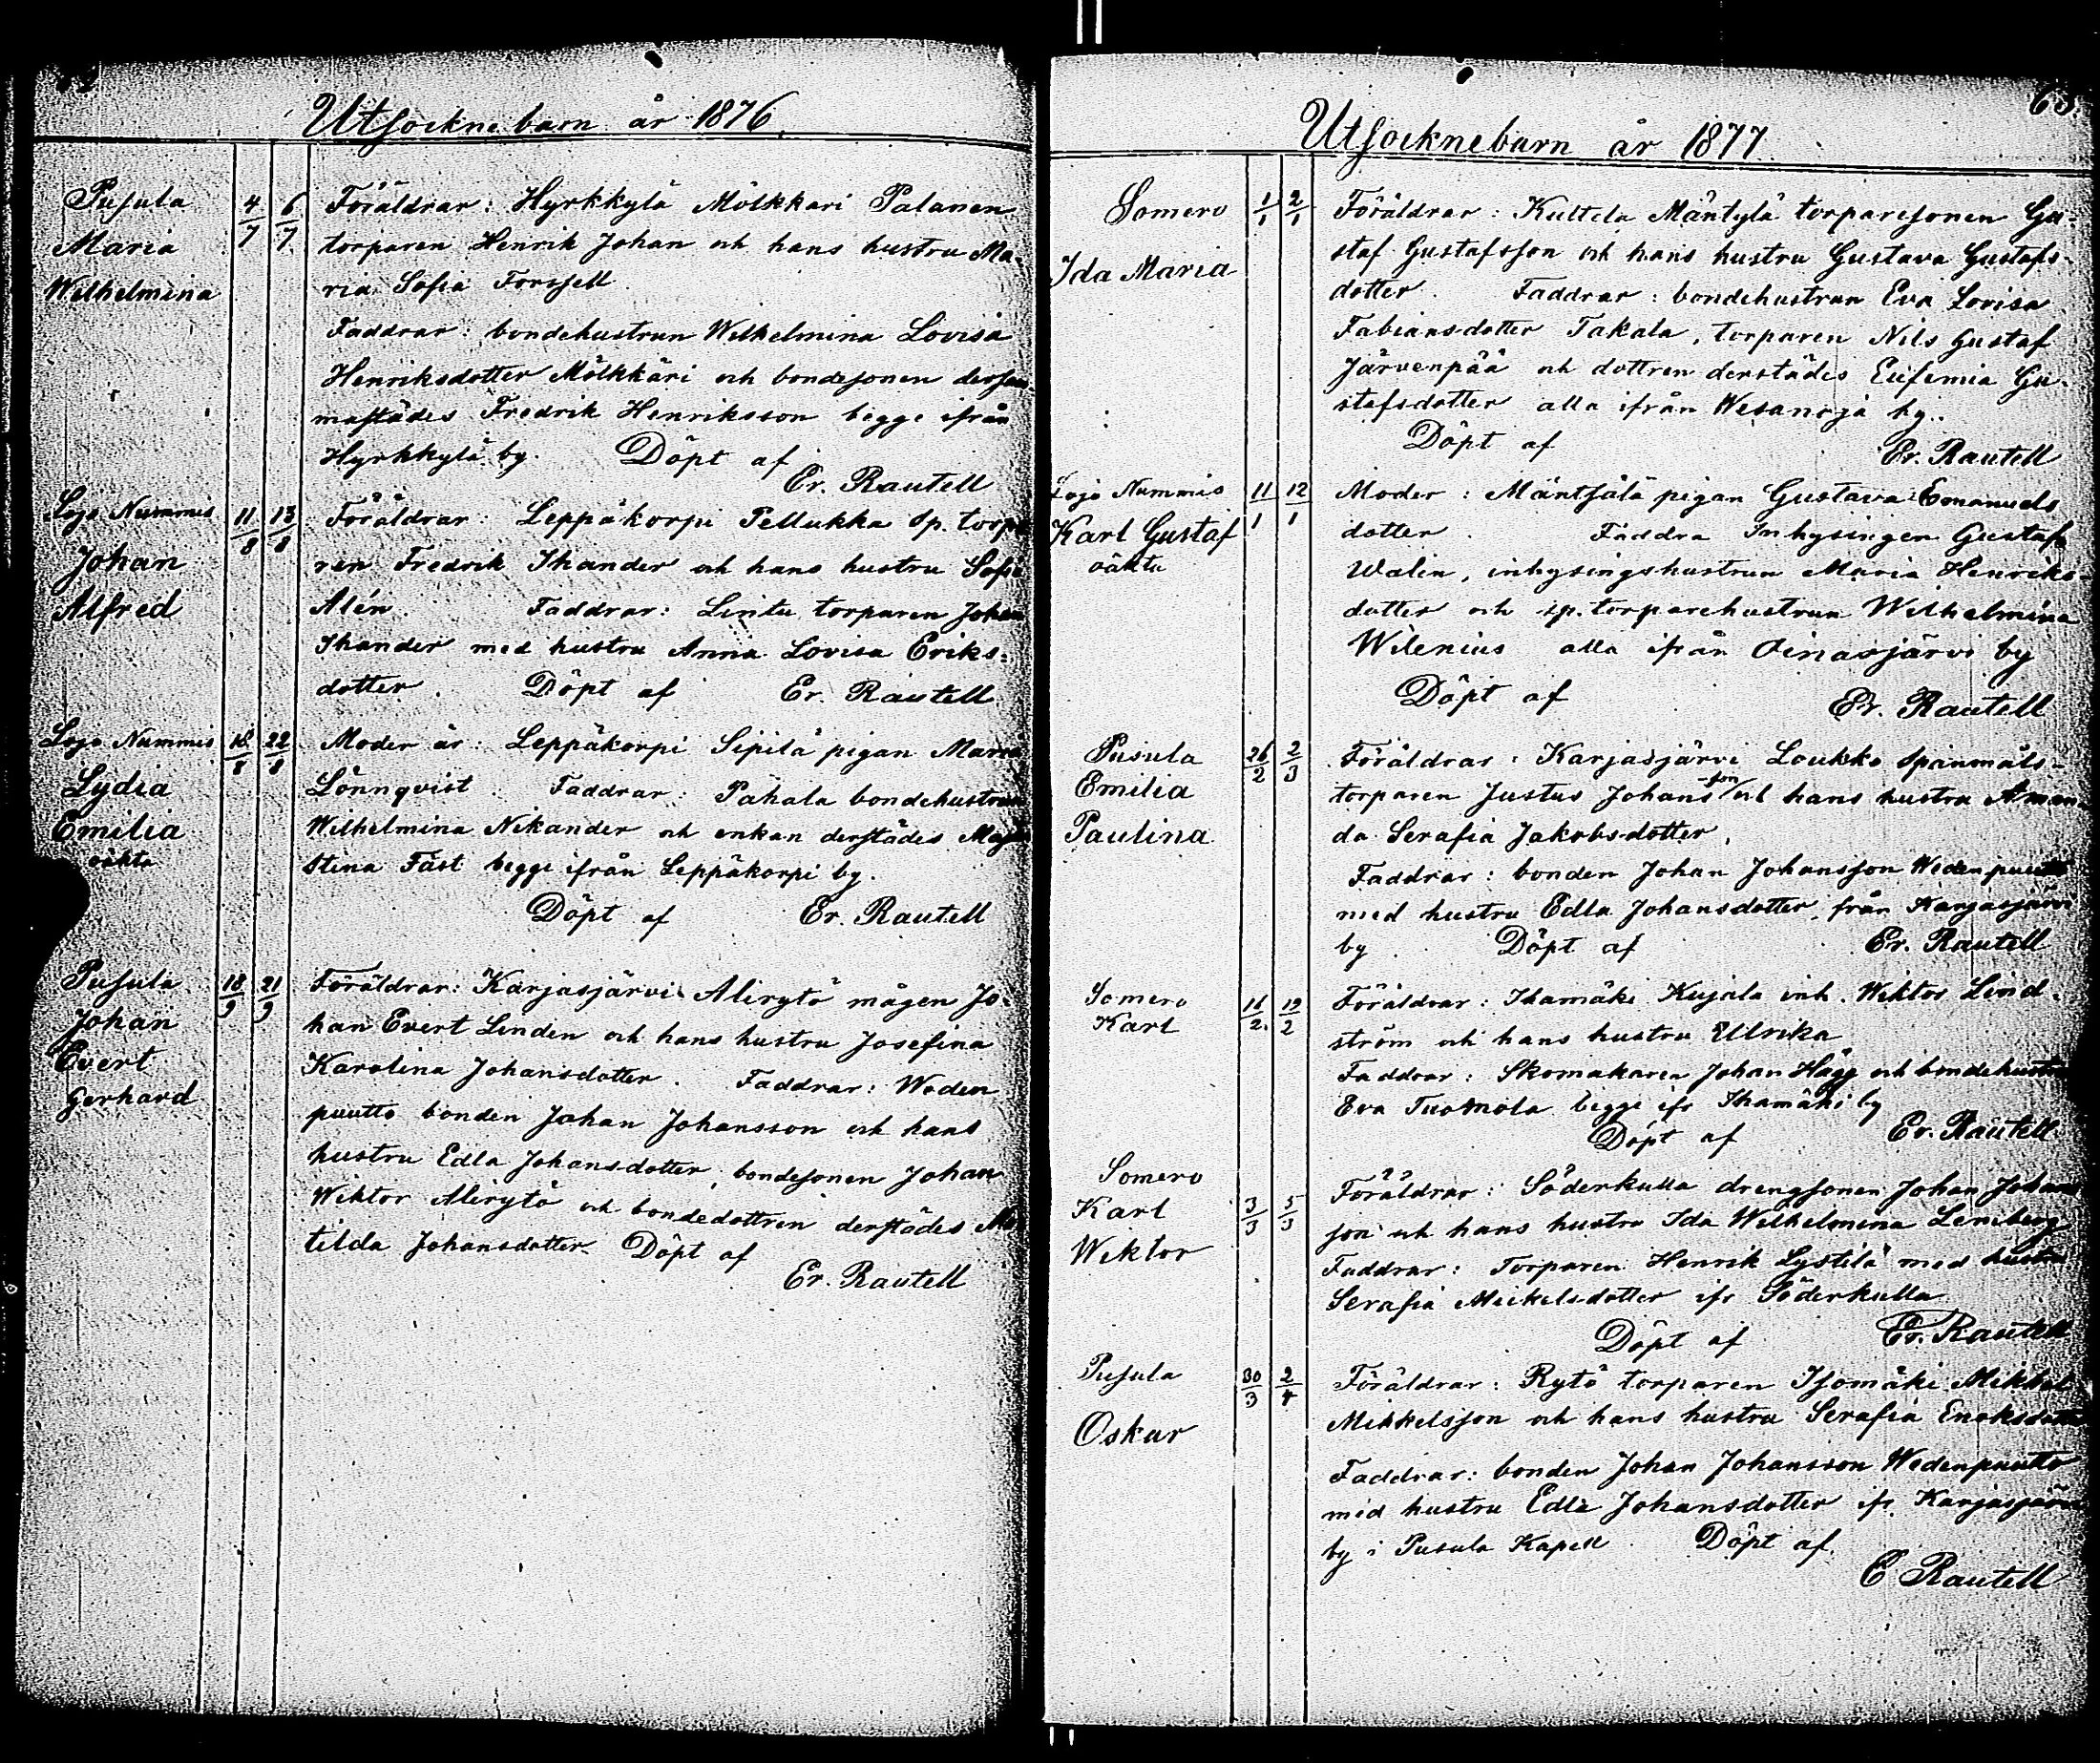 Utsocknebarn år 1876
Pusula
Maria
Wilhelmina
4/7 6/7
Föräldrar: Hyrkkylä Mölkkäri Palanen
torparen Henrik Johan och hans hustru Ma-
ria Sofia Forssell.
Faddrar: bondehustrun Wilhelmina Lovisa
Henriksdotter Mölkkäri och bondesonen dersam
mastädes Fredrik Henriksson begge ifrån
Hyrkkylä by. Döpt af
Er. Rautell
Lojo Nummis
Johan
Alfred
11/8 13/8
Föräldrar: Leppäkorpi Pellukka sp. torpa
ren Fredrik Ikander och hans hustru Sofia
Alén. Faddrar: Lintu torparen Johan
Ikander med hustru Anna Lovisa Eriks=
dotter. Döpt af Er. Rautell
Lojo Nummis
Lydia
Emilia
oäkta
18/8 22/8
Moder är: Leppäkorpi Sipilä pigan Maria
Lönnqvist. Faddrar: Pahala bondehustrun
Wilhelmina Nikander och enkan derstädes Maja
Stina Fast begge ifrån Leppäkorpi by.
Döpt af Er. Rautell
Pusula
Johan
Evert
Gerhard
18/9 21/9
Föräldrar: Karjasjärvi Alirytö mågen Jo-
han Evert Linden och hans hustru Josefina
Karolina Johansdotter. Faddrar: Weden
puutto bonden Johan Johansson och hans
hustru Edla Johansdotter, bondesonen Johan
Wiktor Alirytö och bondedottren derstädes Ma
tilda Johansdotter. Döpt af
Er. Rautell
63.
Utsocknebarn år 1877
Somero
Ida Maria
1/1 2/1
Föräldrar: Kultela Mäntylä torparesonen Gu=
staf Gustafsson och hans hustru Gustava Gustafs-
dotter. Faddrar: bondehustrun Eva Lovisa
Fabiansdotter Takala, torparen Nils Gustaf
Järvenpää och dottren derstädes Eufemia Gu-
stafsdotter alla ifrån Wesanoja by.
Döpt af
Er. Rautell
Lojo Nummis
Karl Gustaf
oäkta
11/1 12/1
Moder: Mäntsälä pigan Gustava Emanuels
dotter. Faddra Inhysingen Gustaf
Walin, inhysingshustrun Maria Henriks-
dotter och sp. torparehustrun Wilhelmina
Wilenius alla ifrån Oinasjärvi by
Döpt af
Er. Rautell
Pusula
Emilia
Paulina
26/2 2/3
Föräldrar: Karjasjärvi Loukko spanmåls-
torparen Justus Johans-son och hans hustru Aman-
da Serafia Jakobsdotter,
Faddrar: bonden Johan Johansson Wedenpuutto
med hustru Edla Johansdotter, från Karjasjärvi
by. Döpt af Er. Rautell
Somero
Karl
16/2 19/2
Föräldrar: Ihamäki Kujala inh. Wiktor Lind-
ström och hans hustru Ulrika
Faddrar: Skomakaren Johan Hägg och bondehustru
Eva Tuomola begge ifr Ihamäki by
Döpt af Er. Rautell
Somero
Karl
Wiktor
3/3 5/3
Föräldrar: Söderkulla drengsonen Johan Johans
son och hans hustru Ida Wilhelmina Lemberg
Faddrar: Torparen Henrik Lystilä med hustru
Serafia Mickelsdotter ifr Söderkulla
Döpt af Er. Rautell
Pusula
Oskar
30/3 2/4
Föräldrar: Rytö torparen Isomäki Mikkel
Mikkelsson och hans hustru Serafia Enoksdotter
Faddrar: bonden Johan Johansson Wedenpuutto
med hustru Edla Johansdotter ifr. Karjasjärvi
by i Pusula Kapell. Döpt af.
E Rautell